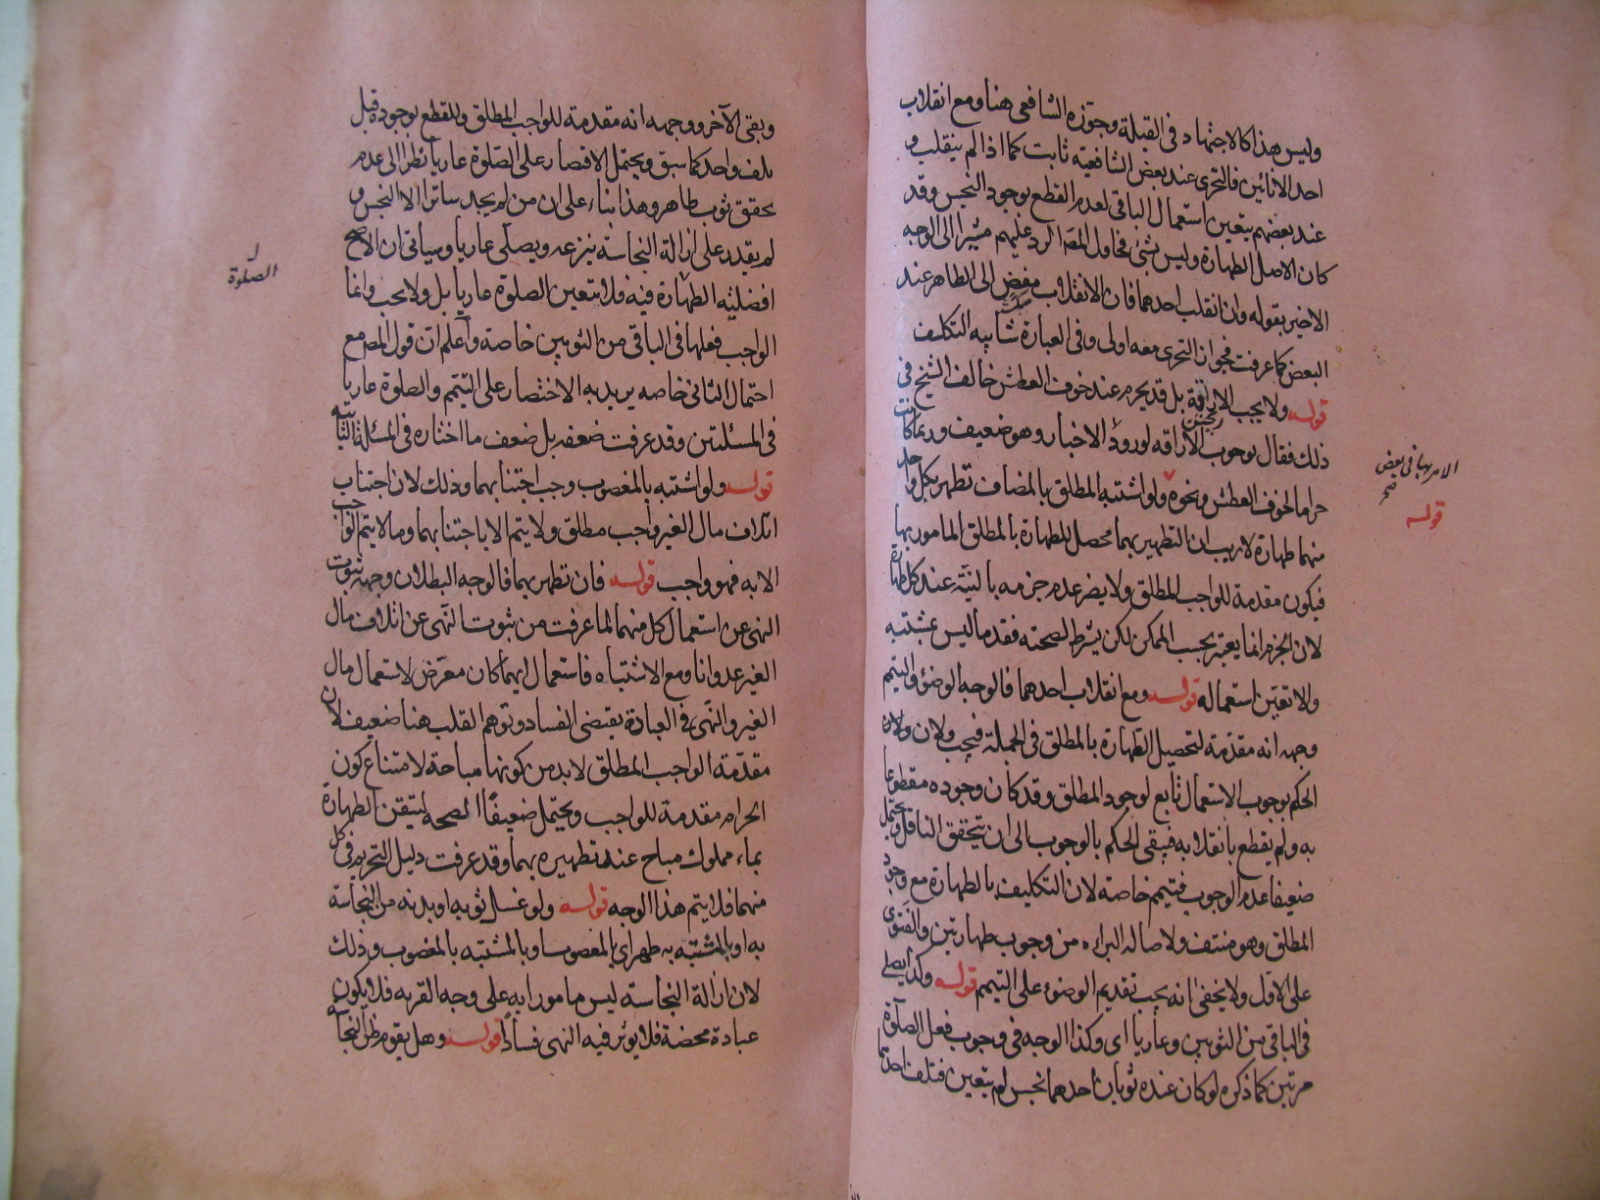 وليس هذا كالاجتهاد في القبلة وجوزه الشافعي هنا ومع انقلاب
احد الانائين فالتحرى عند بعض الشافعية ثابت كما اذا لم ينقلب و
عند بعضهم يتعين استعمال الباقي لعدم القطع بوجود النجس وقد
كان الاصل الطهارة وليس بشئ فحاول المص الرد عليهم مشيرا الى الوجه
الاخير بقوله وان انقلب احدهما فان الانقلاب مفض الى الطاهر عند
البعض كما عرفت فجواز التحرى معه اولى وفي العبارة شايبه التكليف
قوله ولا يجب الاراقة بل قد يحرم عند خوف العطش خالف الشيخ في
ذلك فقال بوجوب الاراقه لورود الاخبار وهو ضعيف وربما كانت
الامر بها في بعض صح
حراما لخوف العطش ونحوه ولو اشتبه المطلق بالمضاف تطهر بكل واحد
قوله
منهما طهارة لا ريب ان التطهير بهما محصل للطهارة بالمطلق المامور بها
فيكون مقدمة للواجب المطلق ولا يضر عدم جزمه بالنيّة عند كل طهارة
لان الجزم انما يعتبر بحسب الممكن لكن يشرط لصحته فقد ما ليس بمشتبه
والا تعين استعماله قوله ومع انقلاب احدهما فالوجه الوضوء والتيمم
وجهه انه مقدمة لتحصيل الطهارة بالمطلق في الجملة فيجب ولان
الحكم بوجوب الاستعمال تابع لوجود المطلق وقد كان وجوده مقطوعا
به ولم يقطع بانقلابه فيبقى الحكم بالوجوب الى ان يتحقق الناقل ويحتمل
ضعيفا عدم الوجوب فتيمم خاصه لان التكليف بالطهارة مع وجود
المطلق وهو منتف ولاصاله البراءه من وجوب طهارتين والفتوى
على الاول ولا يخفى انه يجب تقديم الوضوء على التيمم قوله وكذا يصلى
في الباقي من الثوبين وعاريا اى وكذا الوجه في وجوب فعل الصلوة
مرتين كما ذكره لو كان عنده ثوبان احدهما نجس لم يتعين فتلف احدهما
وبقى الآخر ووجهه انه مقدمة للواجب المطلق وللقطع بوجوده قبل
تلف واحد كما سبق ويحتمل الاقتصار على الصلوة عاريا نظرا الى عدم
تحقق ثوب طاهر وهذا بناء على ان من لم يجد ساترا الا النجس و
لم يقدر على ازالة النجاسة ينزعه ويصلى عاريا وسياتى ان الاصح
الصلوة
افضليه الطهارة فيه فلا تتعين الصلوة عاريا بل ولا يجب وانما
الواجب فعلها في الباقى من الثوبين خاصة واعلم ان قول المص مع
احتمال الثاني خاصه يريد به الاختصار على التيمم والصلوة عاريا
في المسئلتين وقد عرفت ضعفه بل ضعف ما اختاره في المسئلة الثانية
قوله ولو اشتبه بالمغصوب وجب اجتنابهما وذلك لان اجتناب
اتلاف مال الغير واجب مطلق ولا يتم الا باجتنابهما وما لا يتم الواجب
الا به فهو واجب قوله فان تطهر بهما فالوجه البطلان وجهه ثبوت
النهى عن استعمال كل منهما لما عرفت من ثبوت النهى عن اتلاف مال
الغير عدوانا ومع الاشتباه فاستعمال ايهما كان معرض لاستعمال مال
الغير والنهى في العبادة يقتضى الفساد وتوهم القلب هنا ضعيف لان
مقدمة الواجب المطلق لابد من كونها مباحة لامتناع كون
الحرام مقدمة للواجب ويحتمل ضعيفا الصحه ليتقن الطهارة
بماء مملوك مباح عند تطهيره بهما وقد عرفت دليل التحريم في كل
منهما فلا يتم هذا الوجه قوله ولو غسل ثوبه او بدنه من النجاسة
به او بالمشتبه به طهر اى بالمغصوب او بالمشتبه بالمغصوب وذلك
لان ازالة النجاسة ليس مامورا به على وجه القربه فلا يكون
عبادة محضة فلا يؤثر فيه النهى فسادا قوله وهل يقوم ظن النجاسة